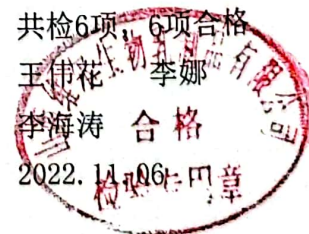 共检6项，6项合格
王伟花 李娜
李海涛 合格
2022.11.06
生物制品有限公司
检验专用章